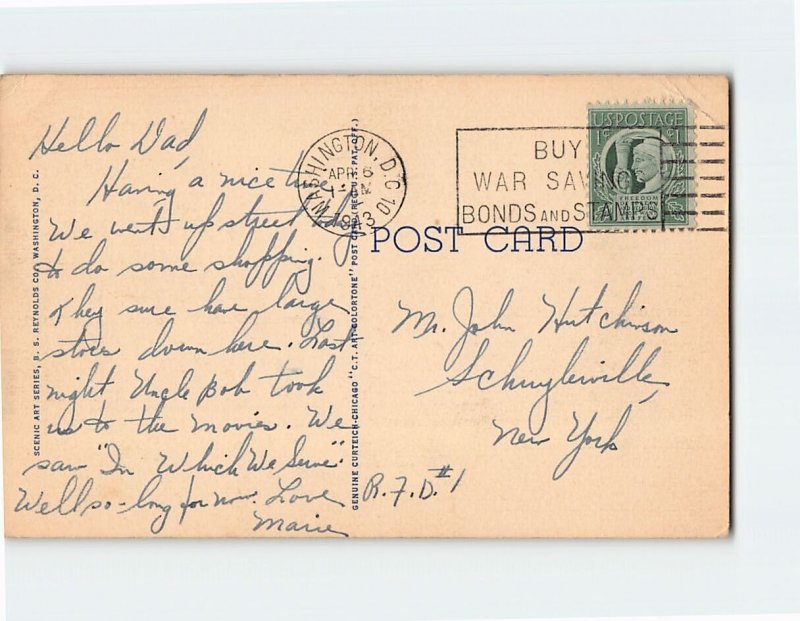 Hello Dad,
Having a nice time.
We went up street today
to do some shopping.
They sure have large
stores down here. Last
night Uncle Bob took
us to the movies. We
saw "In Which We Serve."
Well so-long for now. Love
Marie
SCENIC ART SERIES, B. S. REYNOLDS CO., WASHINGTON, D. C.
GENUINE CURTEICH-CHICAGO "C.T. ART-COLORTONE" POST CARD (REG. U.S. PAT. OFF.)
WASHINGTON, D.C. 10
APR 6
1943
BUY
WAR SAVINGS
BONDS AND STAMPS
U.S. POSTAGE
1¢ 1¢
FREEDOM
POST CARD
Mr. John Hutchinson
Schuylerville,
New York
R.F.D. #1